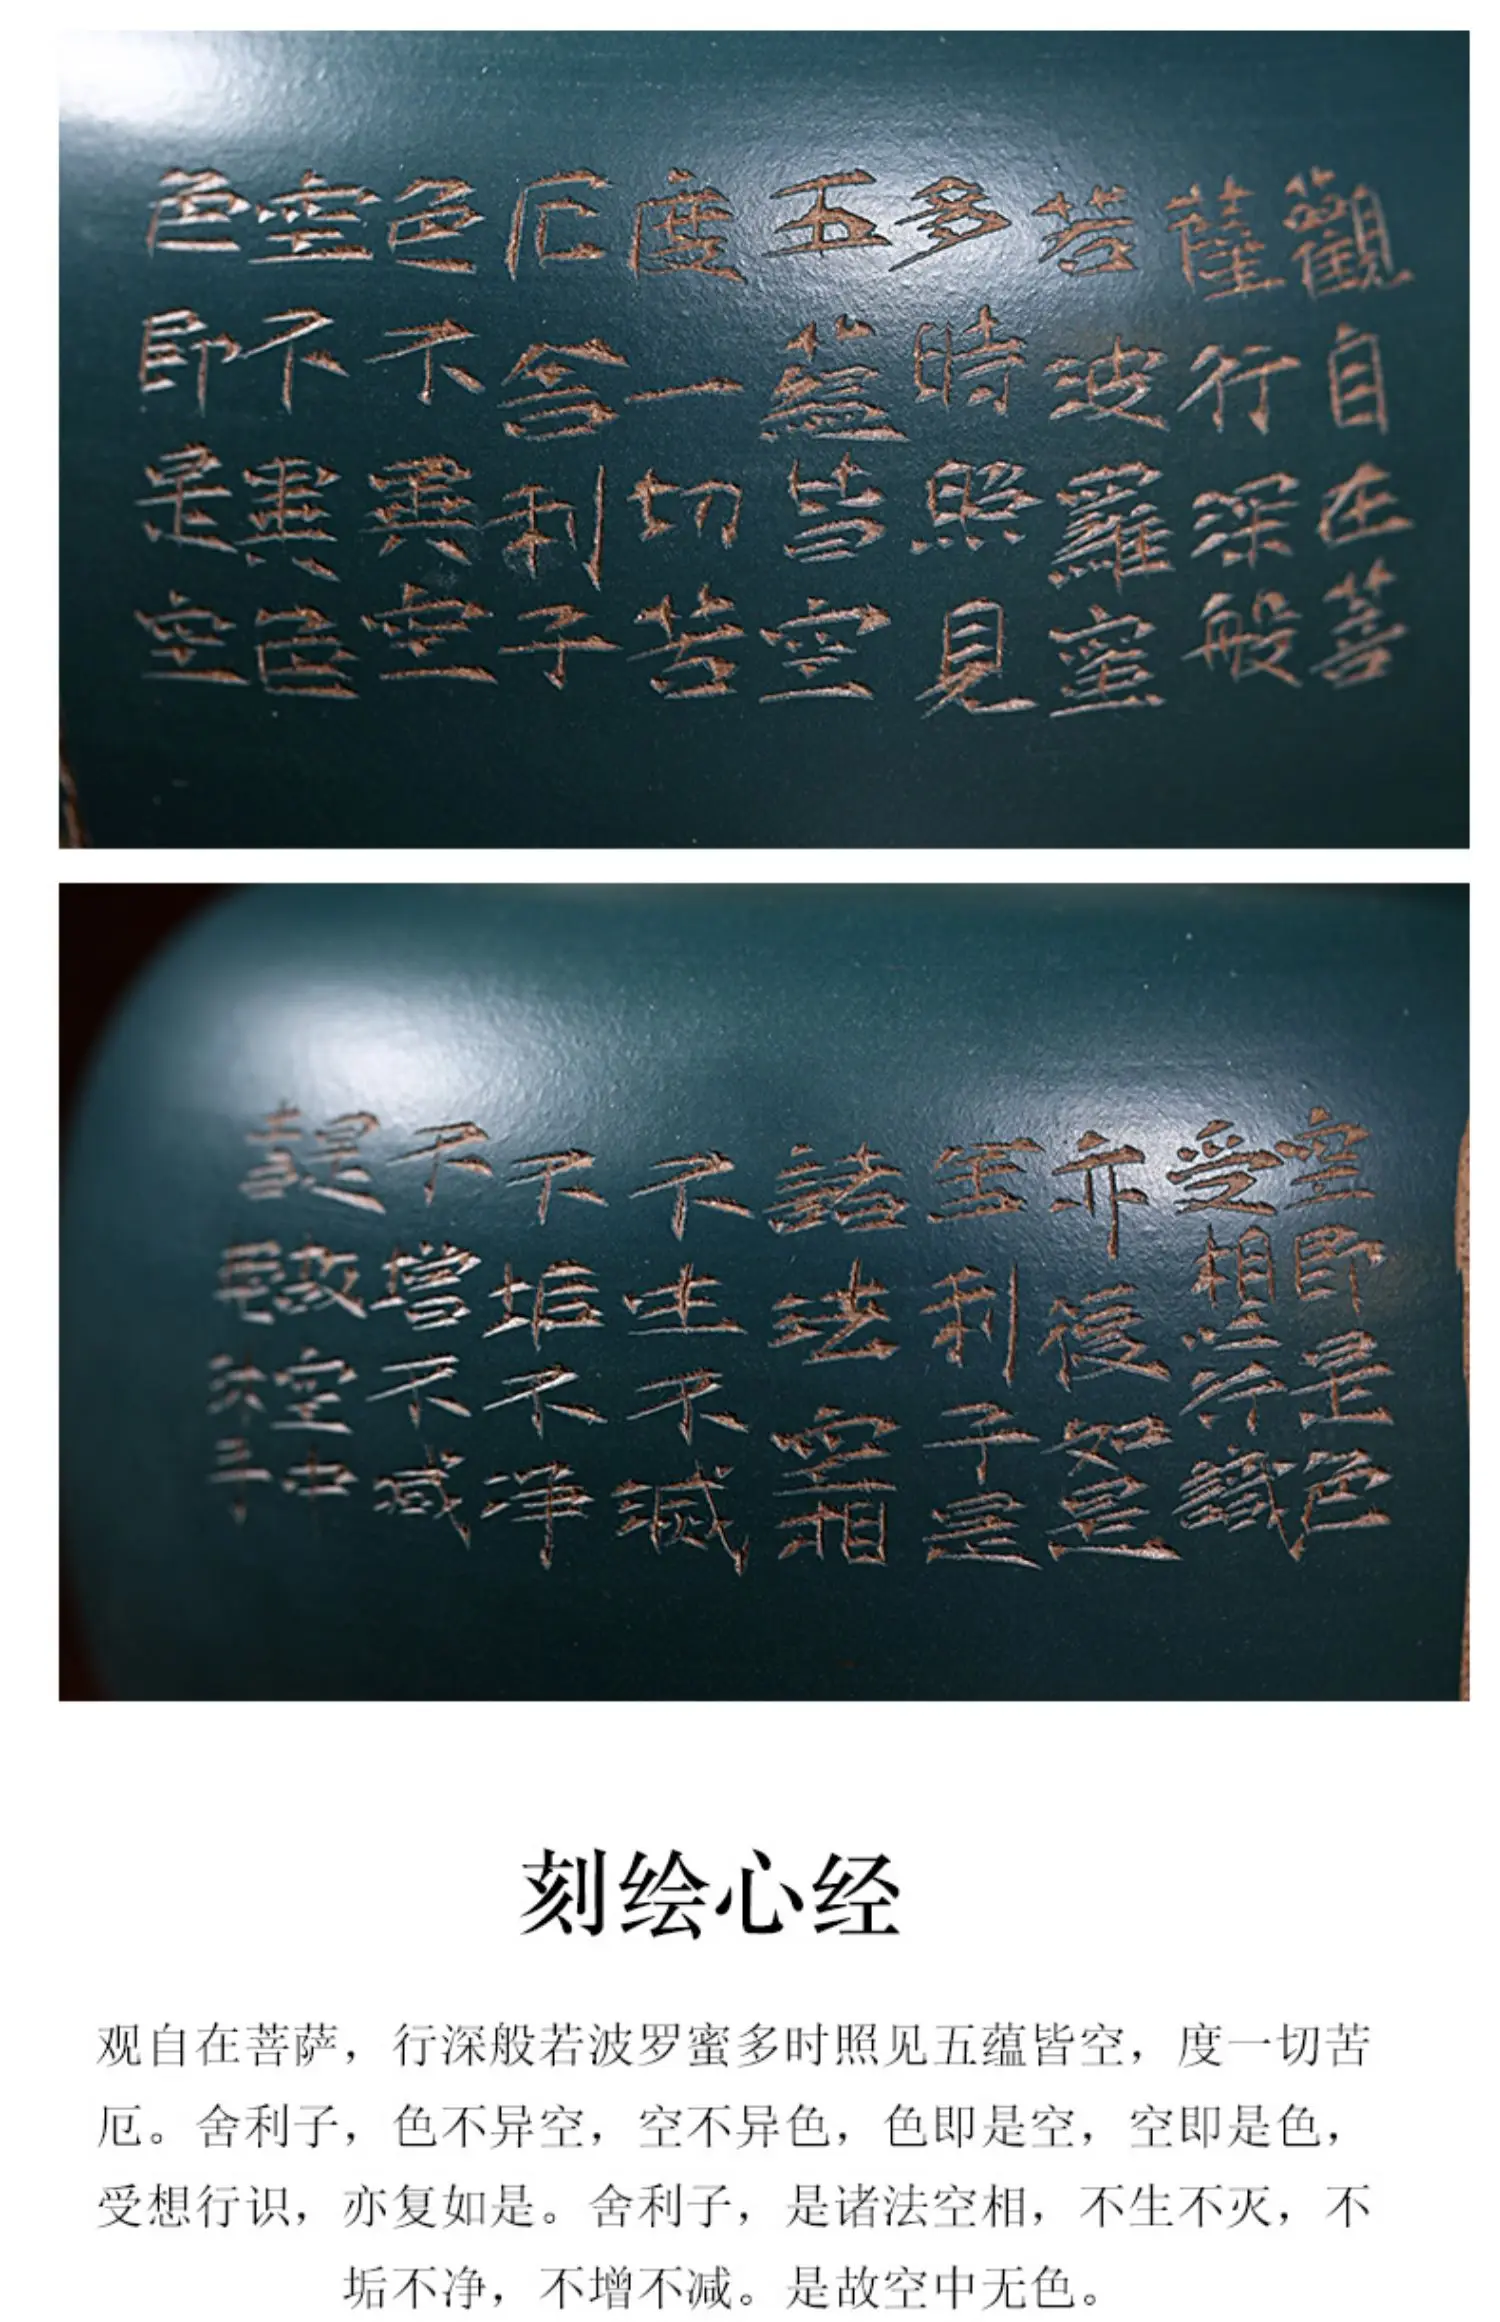 觀自在菩
薩行深般
若波羅蜜
多時照見
五蘊皆空
度一切苦
厄舍利子
色不異空
空不異色
色即是空
空即是色
受想行識
亦復如是
舍利子是
諸法空相
不生不滅
不垢不净
不增不减
是故空中
刻绘心经
观自在菩萨，行深般若波罗蜜多时照见五蕴皆空，度一切苦
厄。舍利子，色不异空，空不异色，色即是空，空即是色，
受想行识，亦复如是。舍利子，是诸法空相，不生不灭，不
垢不净，不增不减。是故空中无色。